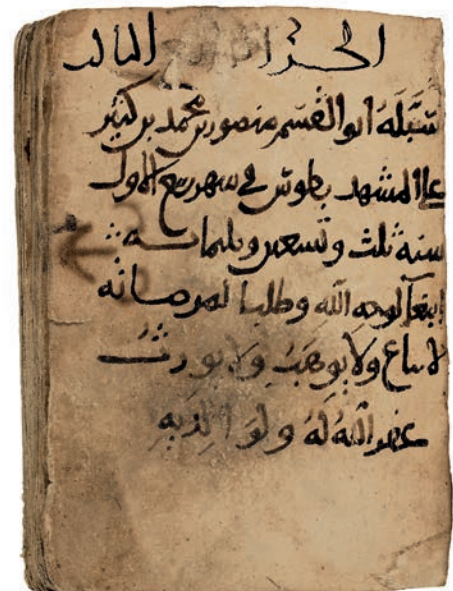 الجزء الثالث
سَبَّلَهُ ابوالقسم منصور بن محمد بن كثير
على المشهد بطوس في شهر ربيع الاول
سنة ثلث وتسعين وثلثمائة
ابتغآ لوجه الله وطلبا لمرضاته
لا يباع ولا يوهب ولا يورث
غفر الله له ولوالديه